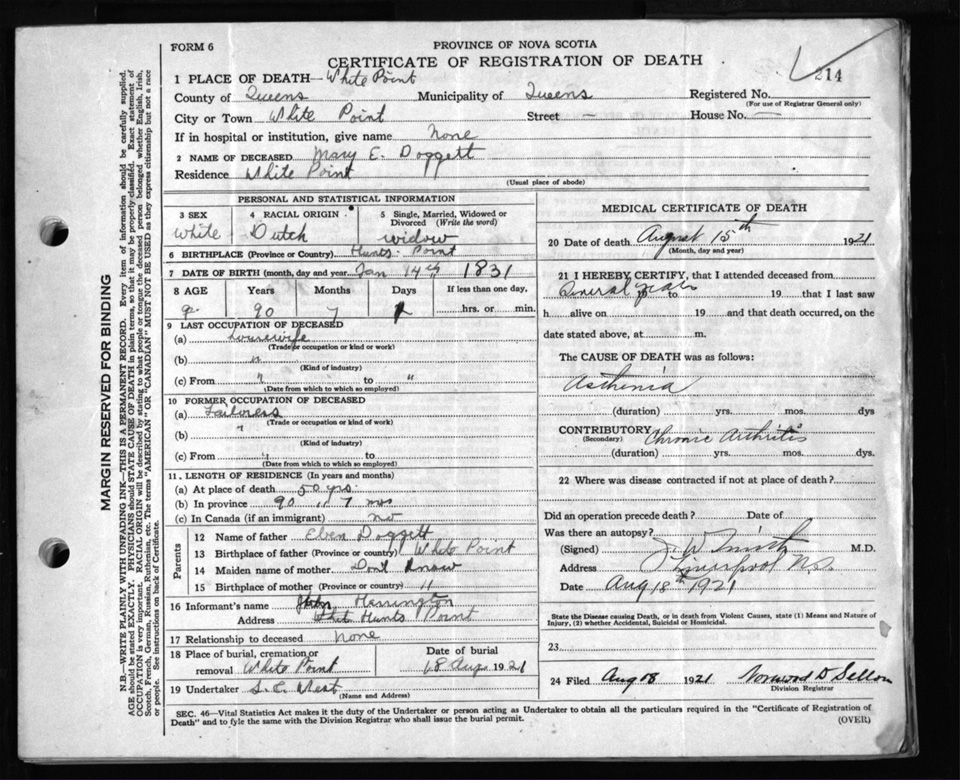 FORM 6
PROVINCE OF NOVA SCOTIA
CERTIFICATE OF REGISTRATION OF DEATH
214
1 PLACE OF DEATH— White Point
County of Queens Municipality of Queens Registered No.
(For use of Registrar General only)
City or Town White Point Street — House No. —
If in hospital or institution, give name None
2 NAME OF DECEASED Mary E. Doggett
Residence White Point
(Usual place of abode)
PERSONAL AND STATISTICAL INFORMATION
3 SEX 4 RACIAL ORIGIN 5 Single, Married, Widowed or Divorced (Write the word)
White Dutch widow
6 BIRTHPLACE (Province or Country) Hunts Point
7 DATE OF BIRTH (month, day and year) Jan 14th 1831
8 AGE Years Months Days If less than one day,
90 7 1 hrs. or min.
9 LAST OCCUPATION OF DECEASED
(a) housewife
(Trade or occupation or kind or work)
(b) "
(Kind of industry)
(c) From " to "
(Date from which to which so employed)
10 FORMER OCCUPATION OF DECEASED
(a) Tailoress
(Trade or occupation or kind of work)
(b) "
(Kind of industry)
(c) From " to
(Date from which to which so employed)
11. LENGTH OF RESIDENCE (In years and months)
(a) At place of death 50 yrs.
(b) In province 90 " 7 mos
(c) In Canada (if an immigrant) no
Parents
12 Name of father Eben Doggett
13 Birthplace of father (Province or country) White Point
14 Maiden name of mother Dont know
15 Birthplace of mother (Province or country) "
16 Informant's name John Herrington
Address Hunts Point
17 Relationship to deceased None
18 Place of burial, cremation or removal White Point
Date of burial
18 Aug 1921
19 Undertaker S. C. West
(Name and Address)
MEDICAL CERTIFICATE OF DEATH
20 Date of death August 15th 1921
(Month, day and year)
21 I HEREBY CERTIFY, that I attended deceased from
Several years to 19 that I last saw
h alive on 19 and that death occurred, on
date stated above, at m.
The CAUSE OF DEATH was as follows:
Asthenia
(duration) yrs. mos. dys
CONTRIBUTORY Chronic Arthritis
(Secondary)
(duration) yrs. mos. dys.
22 Where was disease contracted if not at place of death?
Did an operation precede death? Date of
Was there an autopsy?
(Signed) J. W. Smith M.D.
Address Liverpool N.S.
Date Aug 18th 1921
State the Disease causing Death, or in death from Violent Causes, state (1) Means and Nature of
Injury, (2) whether Accidental, Suicidal or Homicidal.
23
24 Filed Aug 18 1921 Norwood D Sellon
Division Registrar
SEC. 46—Vital Statistics Act makes it the duty of the Undertaker or person acting as Undertaker to obtain all the particulars required in the "Certificate of Registration of
Death" and to fyle the same with the Division Registrar who shall issue the burial permit. (OVER)
MARGIN RESERVED FOR BINDING
N.B.—WRITE PLAINLY WITH UNFADING INK—THIS IS A PERMANENT RECORD. Every item of information should be carefully supplied.
AGE should be stated EXACTLY. PHYSICIANS should STATE CAUSE OF DEATH in plain terms, so that it may be properly classified. Exact statement of
OCCUPATION is very important. RACIAL ORIGIN will be described by stating to what people or tongue the deceased person belonged whether English, Irish,
Scotch, French, German, Russian, Ruthenian, etc. The terms "AMERICAN" OR "CANADIAN" MUST NOT BE USED as they express citizenship but not a race
or people. See instructions on back of Certificate.